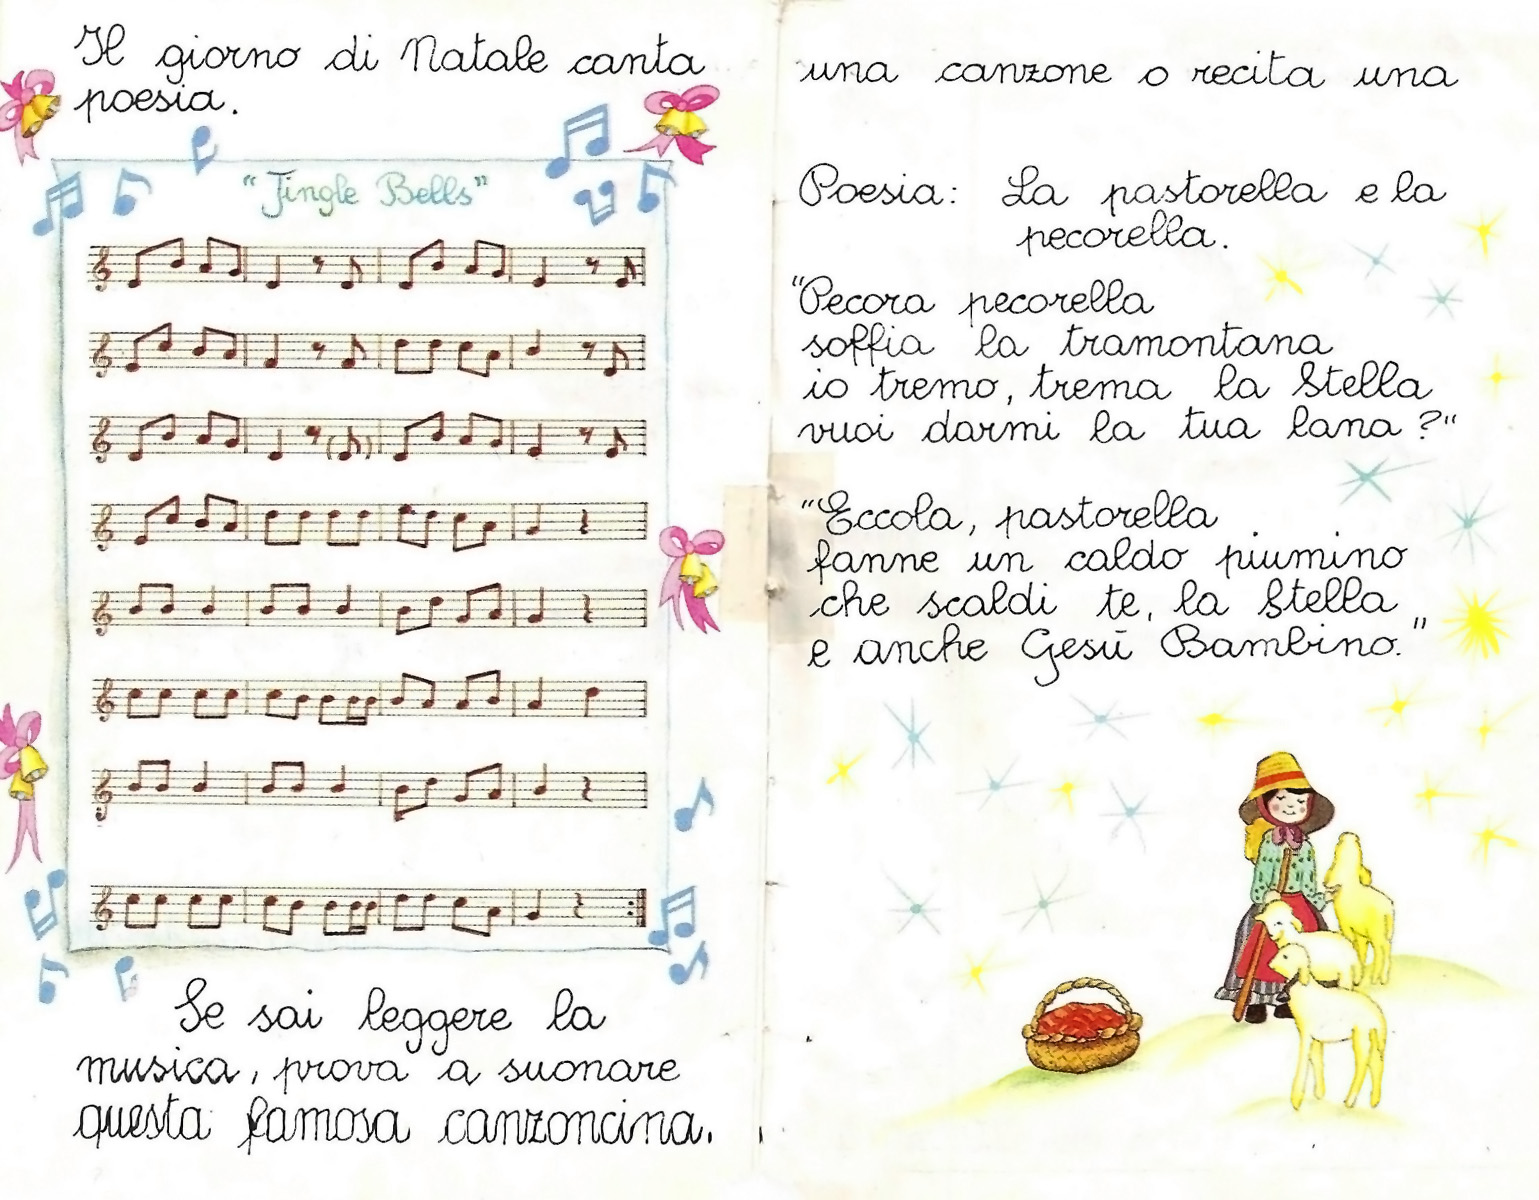 Il giorno di Natale canta
poesia.
"Jingle Bells"
Se sai leggere la
musica, prova a suonare
questa famosa canzoncina.
una canzone o recita una
Poesia: La pastorella e la
pecorella.
"Pecora pecorella
soffia la tramontana
io tremo, trema la Stella
vuoi darmi la tua lana?"
"Eccola, pastorella
fanne un caldo piumino
che scaldi te, la Stella
e anche Gesù Bambino."